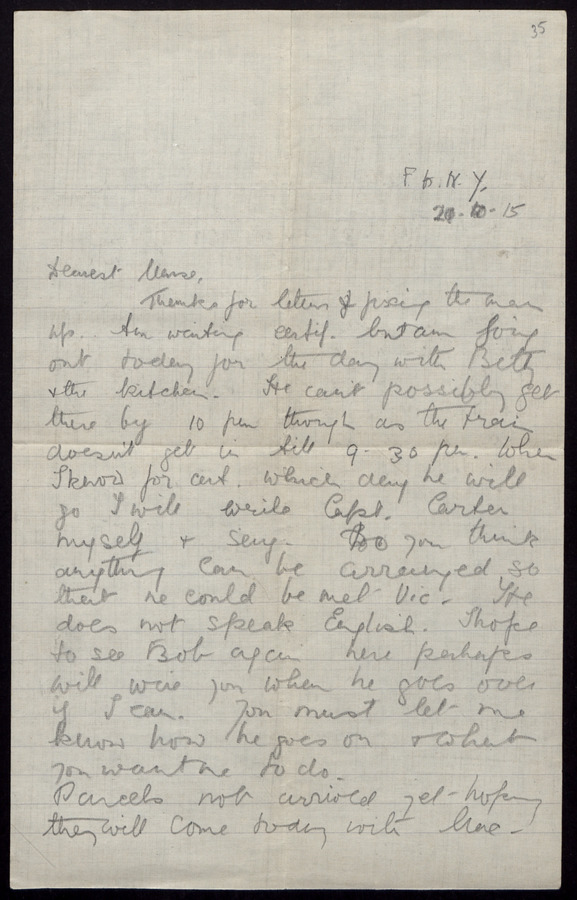 35
F.A.N.Y.
21-10-15
Dearest
Thanks for letters & fixing the man
up. Am wanting certif. but am going
out today for the day with Betty
& the kitchen. He can't possibly get
there by 10 pm though as the train
doesn't get in till 9-30 pm. When
I know for cert. which day he will
go I will write Capt. Carter
myself &
Do you think
anything can be arranged so
that he could be met Vic. He
does not speak English. I hope
to see Bob again here perhaps
will wire you when he goes over
if I can. You must let me
know how he goes on & what
you want me to do.
Parcels not arrived yet - hoping
they will come today with